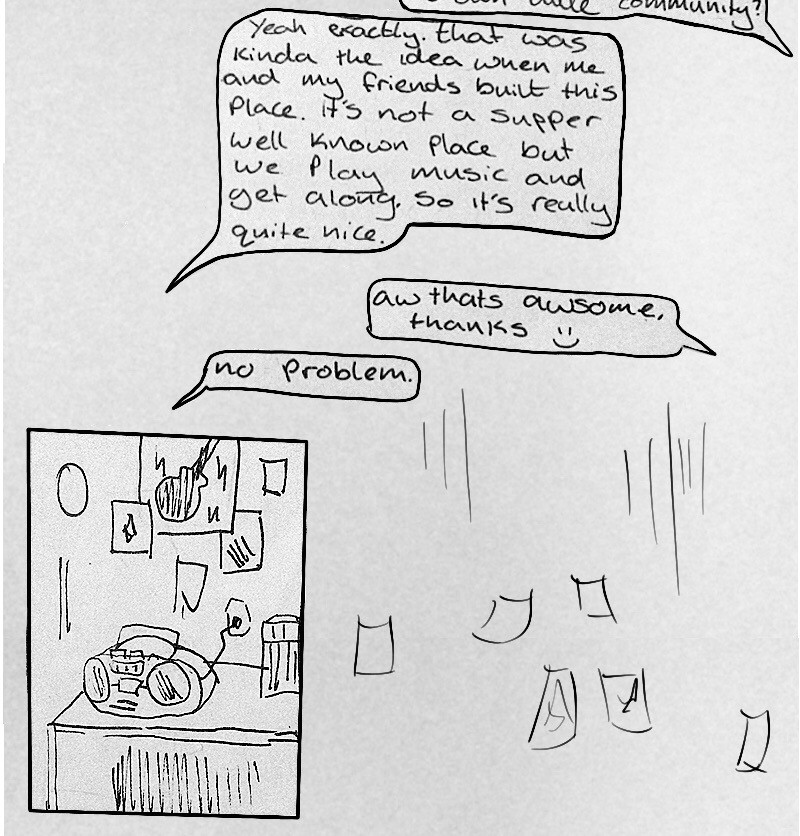 community?
Yeah exactly. that was
kinda the idea when me
and my friends built this
Place. it's not a supper
well known place but
we Play music and
get along. so it's really
quite nice.
aw thats awsome,
thanks :)
no problem.